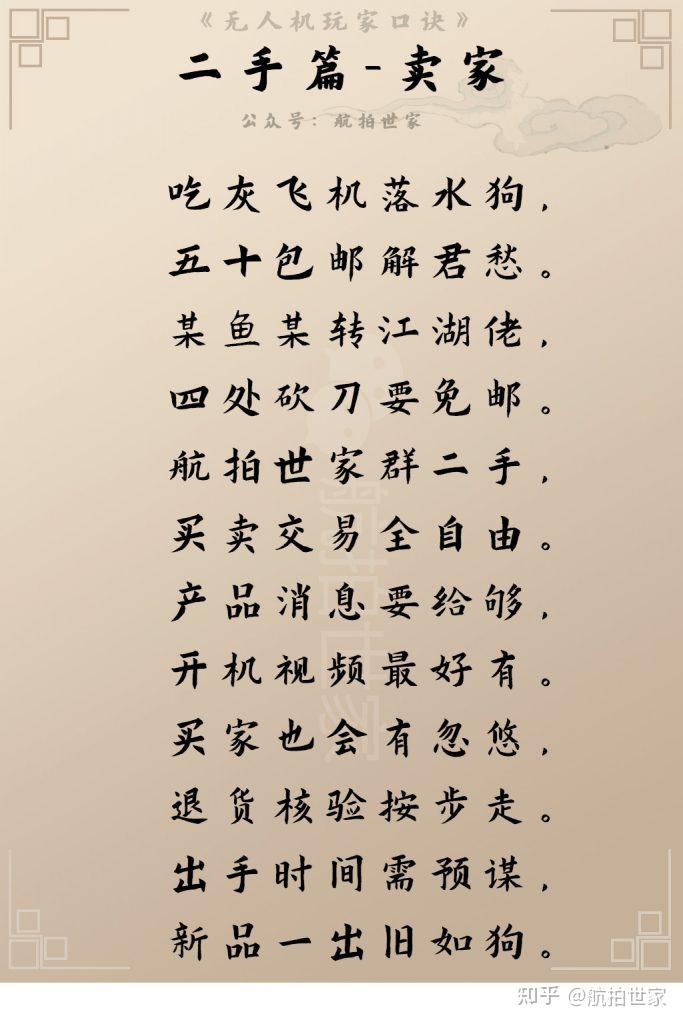 《无人机玩家口诀》
二手篇-卖家
公众号：航拍世家
吃灰飞机落水狗，
五十包邮解君愁。
某鱼某转江湖佬，
四处砍刀要免邮。
航拍世家群二手，
买卖交易全自由。
产品消息要给够，
开机视频最好有。
买家也会有忽悠，
退货核验按步走。
出手时间需预谋，
新品一出旧如狗。
航拍世家
知乎 @航拍世家